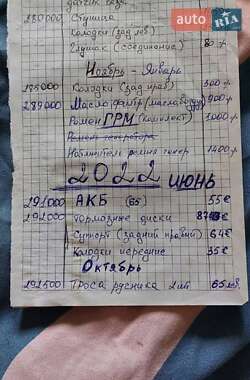 auto RIA
датчик
280000 Ступица
Колодки (зад лев)
Глушак (соединение) 80
Ноябрь - Январь
285000 Колодки (зад прав) 500 р
289000 Масло фильтр (масло) 900р
Ремен ГРМ (комплект) 1000 р
Ремен генератора
Натяжитель ремня генер 1400р
2022 июнь
291000 АКБ (65) 55€
292000 тормозные диски €
Суппорт (задний правый) 64€
Колодки передние 35€
Октябрь
292500 Троса ручника 2шт 65